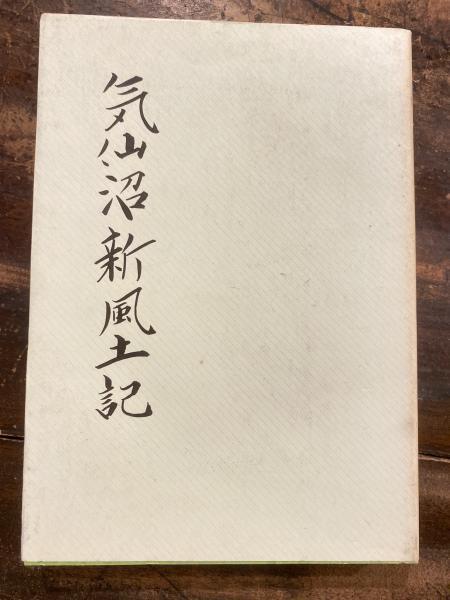 気仙沼新風土記